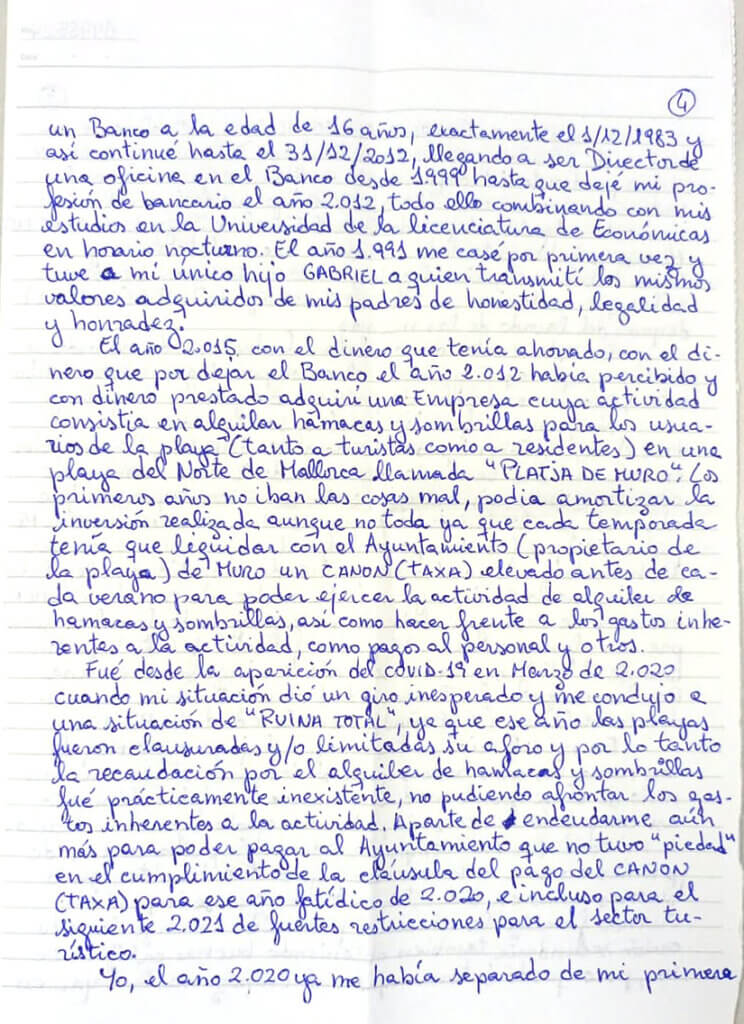 4
un Banco a la edad de 16 años, exactamente el 1/12/1983 y
así continué hasta el 31/12/2012, llegando a ser Director de
una oficina en el Banco desde 1.999 hasta que dejé mi pro-
fesión de bancario el año 2.012, todo ello combinando con mis
estudios en la Universidad de la licenciatura de Económicas
en horario nocturno. El año 1.991 me casé por primera vez y
tuve a mi único hijo GABRIEL a quien transmití los mismos
valores adquiridos de mis padres de honestidad, legalidad
y honradez.
El año 2.015 con el dinero que tenía ahorrado, con el di-
nero que por dejar el Banco el año 2.012 había percibido y
con dinero prestado adquirí una Empresa cuya actividad
consistía en alquilar hamacas y sombrillas para los usua-
rios de la playa (tanto a turistas como a residentes) en una
playa del Norte de Mallorca llamada "PLATJA DE MURO". Los
primeros años no iban las cosas mal, podía amortizar la
inversión realizada aunque no toda ya que cada temporada
tenía que liquidar con el Ayuntamiento (propietario de
la playa) de MURO un CANON (TAXA) elevado antes de ca-
da verano para poder ejercer la actividad de alquiler de
hamacas y sombrillas, así como hacer frente a los gastos inhe-
rentes a la actividad, como pagos al personal y otros.
Fué desde la aparición del COVID-19 en Marzo de 2.020
cuando mi situación dió un giro inesperado y me condujo a
una situación de "RUINA TOTAL", ya que ese año las playas
fueron clausuradas y/o limitadas su aforo y por lo tanto
la recaudación por el alquiler de hamacas y sombrillas
fué prácticamente inexistente, no pudiendo afrontar los gas-
tos inherentes a la actividad. Aparte de endeudarme aún
más para poder pagar al Ayuntamiento que no tuvo "piedad"
en el cumplimiento de la cláusula del pago del CANON
(TAXA) para ese año fatídico de 2.020, e incluso para el
siguiente 2.021 de fuertes restricciones para el sector tu-
rístico.
Yo, el año 2.020 ya me había separado de mi primera